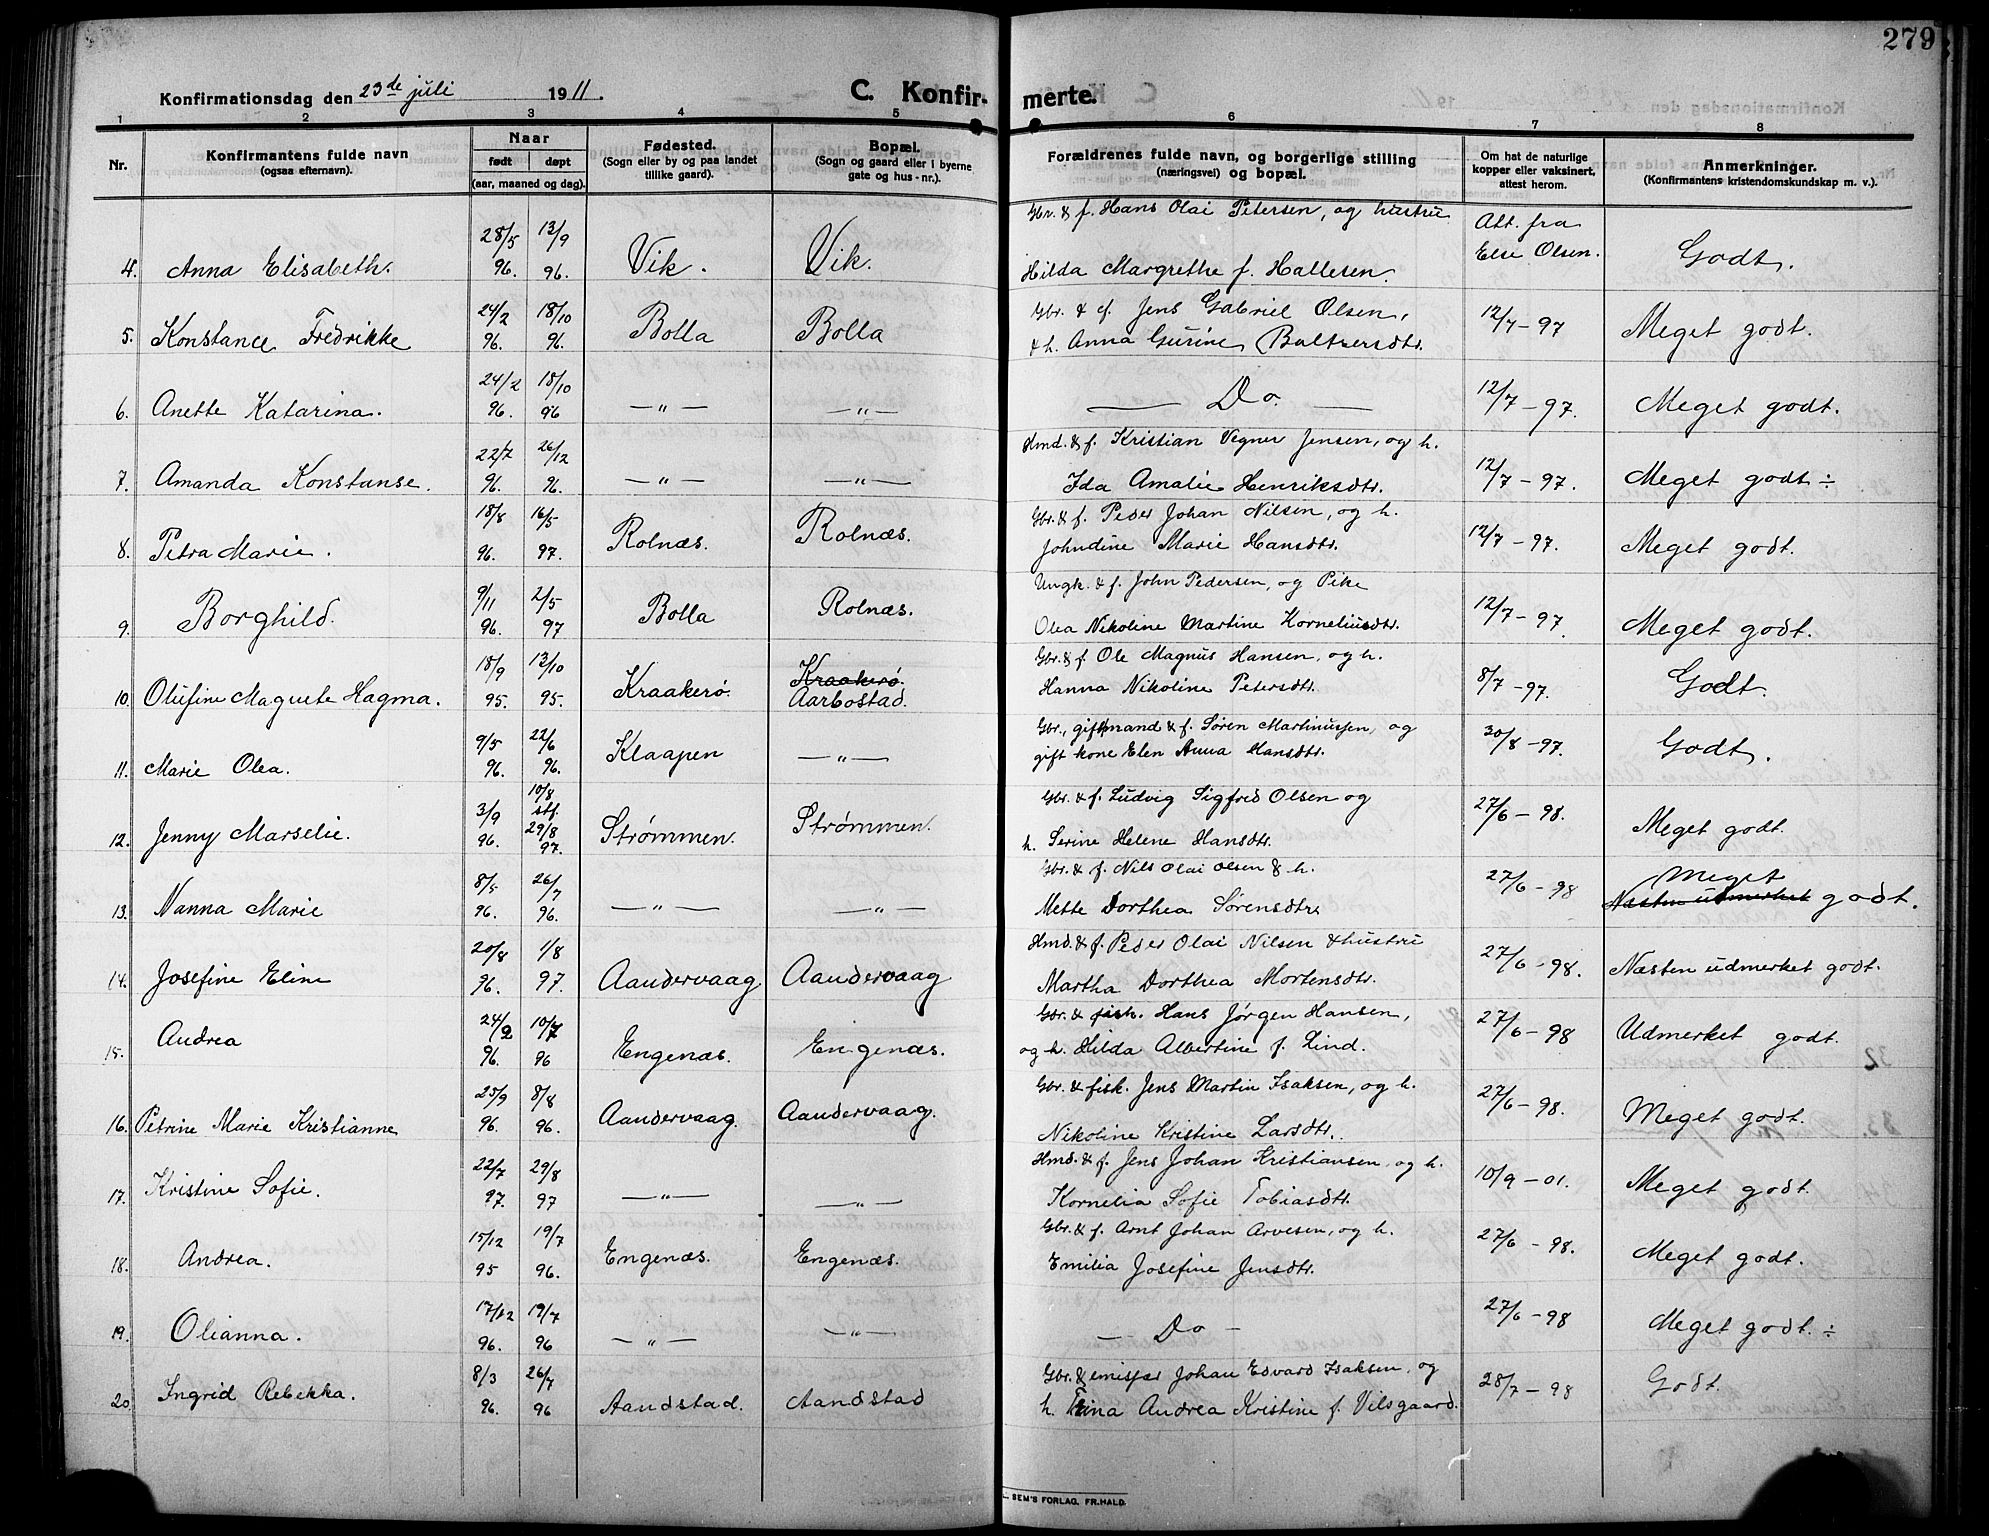 279
Konfirmationsdag den 23de juli 1911. C. Konfirmerte.
1 2 3 4 5 6 7 8
Nr. Konfirmantens fulde navn (ogsaa efternavn). Naar født døpt (aar, maaned og dag). Fødested. (Sogn eller by og paa landet tillike gaard). Bopæl. (Sogn og gaard eller i byerne gate og hus-nr.). Forældrenes fulde navn, og borgerlige stilling (næringsvei) og bopæl. Om hat de naturlige kopper eller vaksinert, attest herom. Anmerkninger. (Konfirmantens kristendomskundskap m. v.).
4. Anna Elisabeth. 28/5 96. 13/9 96. Vik. Vik. Gbr. & f. Hans Olai Petersen, og hustru Hilda Margrethe f. Hallesen. Att. fra Else Olsen. Godt.
5. Konstance Fredrikke 24/2 96. 18/10 96. Bolla Bolla Gbr. & f. Jens Gabriel Olsen, & h. Anna Gurine Baltsersdtr. 12/7-97 Meget godt.
6. Anette Katarina. 24/2 96. 18/10 96 —„— —„— — Do. — 12/7-97. Meget godt.
7. Amanda Konstanse. 22/7 96. 26/12 96. —„— —„— Hmd. & f. Kristian Vegner Jensen, og h. Ida Amalie Henriksdtr. 12/7-97. Meget godt ÷
8. Petra Marie. 18/8 96. 16/5 97. Rolnæs. Rolnæs. Gbr. & f. Peder Johan Nilsen, og h. Johndine Marie Hansdtr. 12/7-97. Meget godt.
9. Borghild. 9/11 96. 2/5 97 Bolla Rolnæs. Ungk. & f. John Pedersen, og Pike Olea Nikoline Martine Korneliusdtr. 12/7-97. Meget godt.
10. Olufine Magnete Hagma. 18/9 95. 13/10 95. Kraakerø. Kraakerø. Aarbostad. Gbr. & f. Ole Magnus Hansen, og h. Hanna Nikoline Petersdtr. 8/7-97. Godt.
11. Marie Olea. 9/5 96. 22/6 96. Klaapen —„— Gbr., giftmand & f. Søren Martinussen, og gift kone Elen Anna Hansdtr. 30/8-97. Godt.
12. Jenny Marselie. 3/9 96. 10/8 stf. 29/8 97. Strømmen. Strømmen. Gbr. & f. Ludvig Sigfred Olsen og h. Serine Helene Hansdtr. 27/6-98. Meget godt.
13. Nanna Marie 8/5 96. 26/7 96. —„— —„— Gbr. & f. Nils Olai Olsen & h. Mette Dorthea Sørensdtr 27/6-98 Meget Næsten udmerket godt.
14. Josefine Eline 20/8 96. 1/8 97. Aandervaag Aandervaag Hmd. & f. Peder Olai Nilsen & hustru Martha Dorthea Mortensdtr. 27/6-98. Næsten udmerket godt.
15. Andrea 24/2 96. 10/7 96 Engenæs. Engenæs. Gbr. & fisk. Hans Jørgen Hansen, og h. Hilda Albertine f. Lind. 27/6-98 Udmerket godt.
16. Petrine Marie Kristianne 25/9 96. 8/8 96. Aandervaag. Aandervaag. Gbr. & fisk. Jens Martin Isaksen, og h. Nikoline Kristine Larsdtr. 27/6-98. Meget godt.
17. Kristine Sofie. 22/7 97. 29/8 97 —„— —„— Hmd. & f. Jens Johan Kristiansen, og h. Kornelia Sofie Tobiasdtr. 10/9-01. Meget godt.
18. Andrea. 15/12 95 19/7 96. Engenæs. Engenæs. Gbr. & f. Arnt Johan Arvesen, og h. Emilia Josefine Jensdtr. 27/6-98. Meget godt.
19. Olianna. 17/12 96. 19/7 96 —„— —„— — Do — 27/6-98 Meget godt. ÷
20. Ingrid Rebekka. 8/3 96. 26/7 96 Aandstad. Aandstad Gbr. & emisfær Johan Edvard Isaksen, og h. Trina Andrea Kristine f. Vilsgaard. 28/7-98 Godt.
SEM'S FORLAG, FR.HALD.